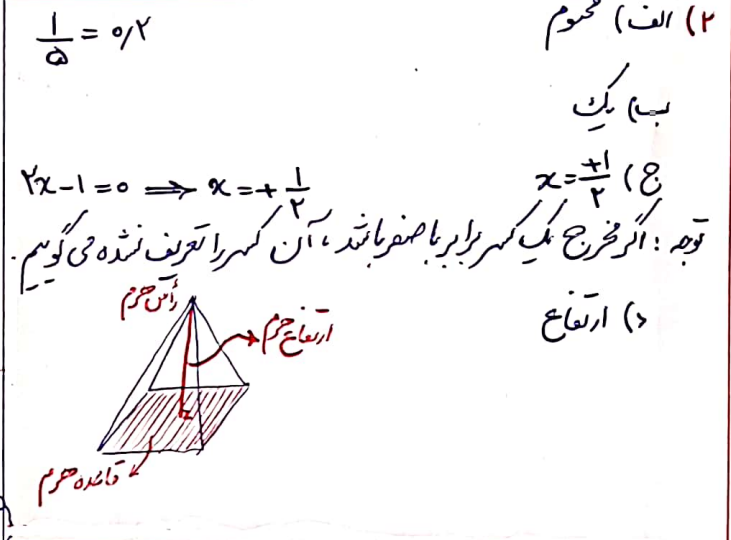 ۲) الف) مختوم
۱/۵ = ۰٫۲
ب) یک
ج) x = +۱/۲
۲x − ۱ = ۰ ⟹ x = + ۱/۲
توجه : اگر مخرج یک کسر برابر با صفر باشد ، آن کسر را تعریف نشده می گوییم .
د) ارتفاع
رأس هرم
ارتفاع هرم
قاعده هرم